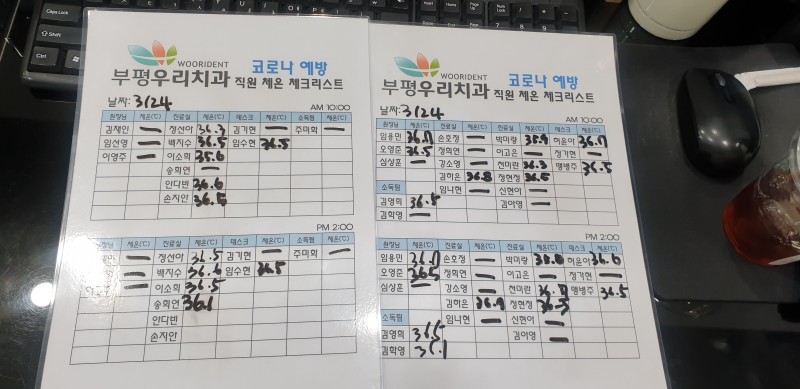 WOORIDENT
부평우리치과
코로나 예방
직원 체온 체크리스트
날짜: 3/24
AM 10:00
원장님 체온(℃) 진료실 체온(℃) 데스크 체온(℃) 소독팀 체온(℃)
김재인 — 정선아 36.3 김기현 — 주미화 —
임선영 — 백지수 36.5 임수현 36.5
이영주 — 이소희 35.6
송희연 —
안다빈 36.6
손지안 36.5
PM 2:00
원장님 체온(℃) 진료실 체온(℃) 데스크 체온(℃) 소독팀 체온(℃)
— 정선아 36.5 김기현 — 주미화 —
— 백지수 36.6 임수현 36.5
— 이소희 36.5
송희연 36.1
안다빈
손지안
WOORIDENT
부평우리치과
코로나 예방
직원 체온 체크리스트
날짜: 3/24
AM 10:00
원장님 체온(℃) 진료실 체온(℃) 진료실 체온(℃) 데스크 체온(℃)
임용민 36.0 손호정 — 박미랑 35.9 허윤아 36.0
오영준 36.5 정희연 — 이고은 — 정기현 —
심성훈 — 강소영 — 천미란 36.3 맹병주 36.5
김하은 36.8 정현정 36.5
소독팀 임나현 — 신현아 —
김영희 36.5 김아영 —
김학영 —
PM 2:00
원장님 체온(℃) 진료실 체온(℃) 진료실 체온(℃) 데스크 체온(℃)
임용민 36.0 손호정 — 박미랑 허윤아 36.6
오영준 36.5 정희연 — 이고은 — 정기현 —
심성훈 — 강소영 — 천미란 맹병주 36.5
김하은 정현정 36.5
소독팀 임나현 — 신현아 —
김영희 36.5 김아영 —
김학영 36.1